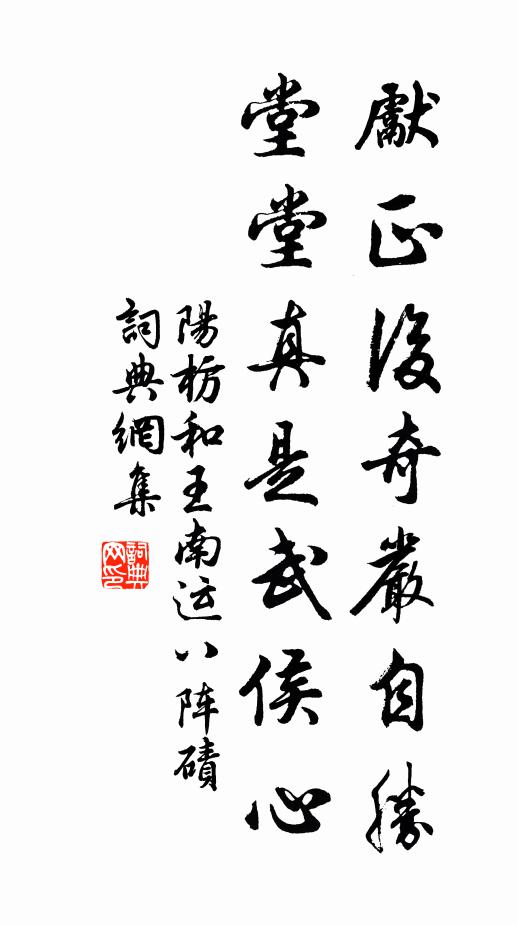 獻正後奇嚴自勝
堂堂真是武侯心
陽枋和王南运八阵磧
詞典網集
詞典網印